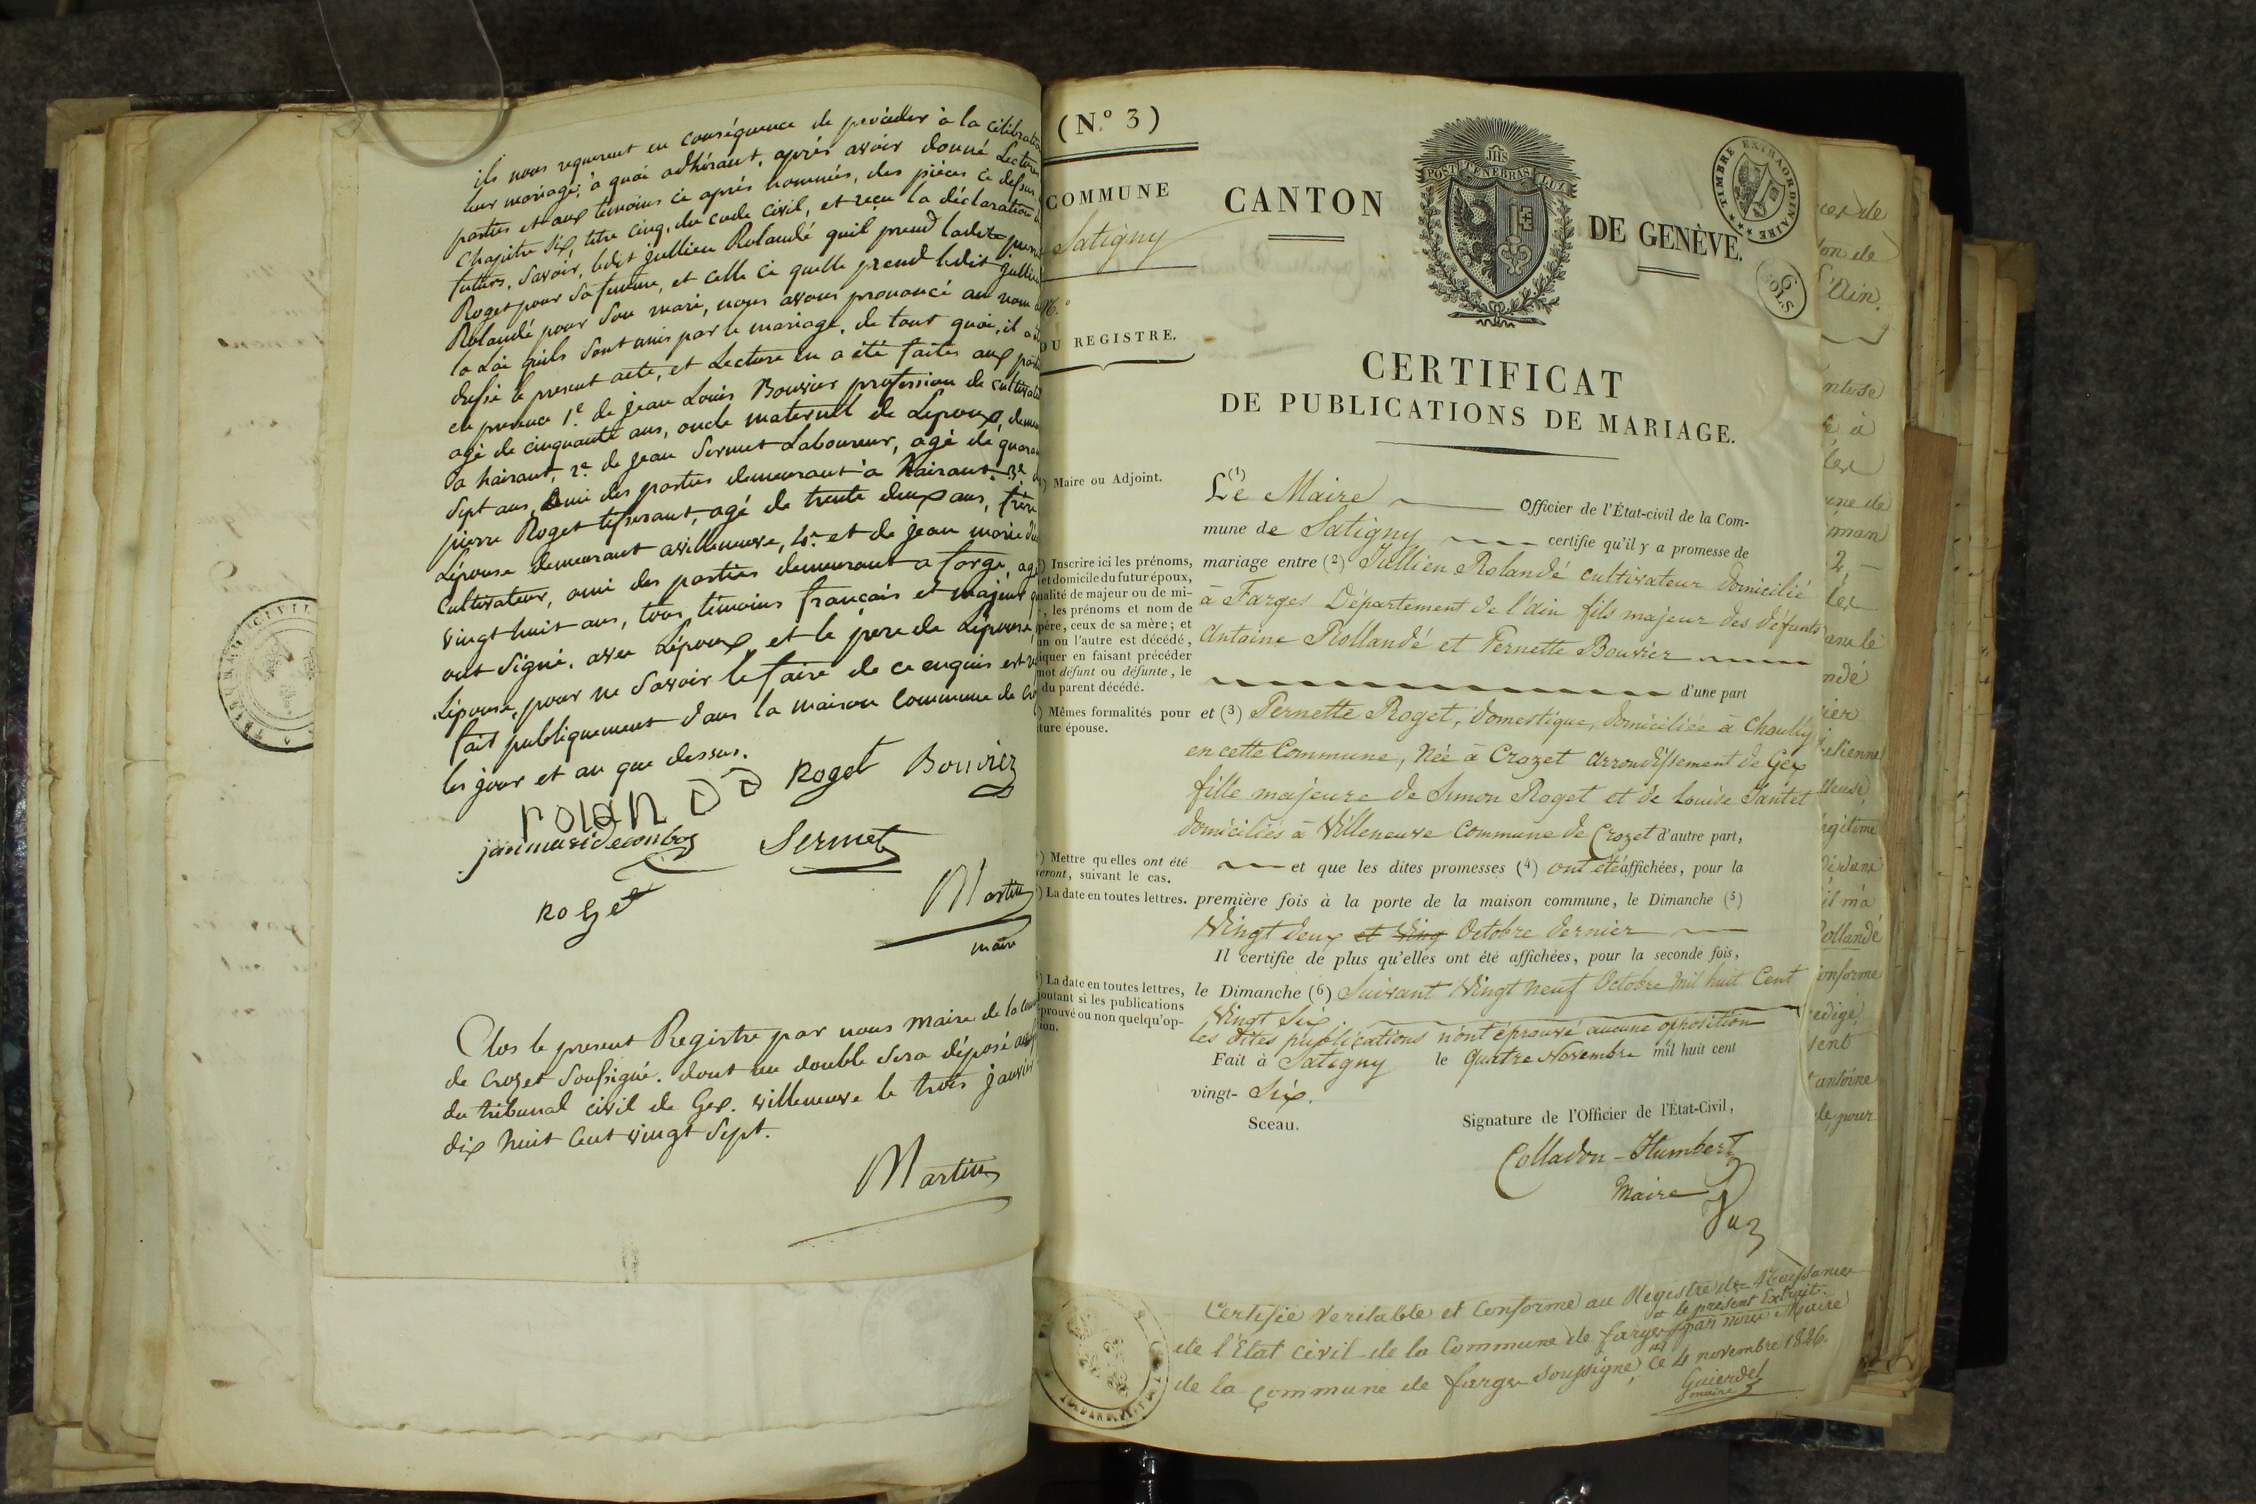 ils nous requerent en conséquence de procéder à la célébration
leur mariage; à quoi adhérant, après avoir donné Lecture
parties et aux témoins ci après nommés, des pièces ci dessus
Chapitre six, titre cinq, du code civil, et reçu la déclaration
futurs, savoir, ledit jullien Rolandé quil prend ladite
Roget pour sa femme, et celle ci quelle prend ledit jullien
Rolandé pour son mari, nous avons prononcé au nom
la Loi quils sont unis par le mariage, de tout quoi, il a
dressé le present acte, et Lecture en a été faites aux
en presence 1e. de jean Louis Bouvier profession de
agé de cinquante ans, oncle maternel de Lepoux,
a hairant, 2e. de jean Sermet Laboureur, agé de
sept ans, ami des parties demeurant à hairant. 3e.
pierre Roget tisserant, agé de trente deux ans, frère
Lépouse demeurant avilleneuve, 4e. et de jean marie
Cultivateur, ami des parties demeurant a farge, agé
vingt huit ans, tous témoins français et majeurs
ont signé, avec Lépoux, et le pere de Lépouse,
Lépouse, pour ne savoir le faire de ce enquis
fait publiquement dans la maison Commune de
les jour et an que dessus.
rolandé Roget Bouvier
janmaridecombos Sermet
Roget
Martin
maire
Clos le present Registre par nous Maire de la
de Crozet Soussigné. dont un double sera déposé
du tribunal civil de Gex. villeneuve le trois janvier
dix huit cent vingt sept.
Martin
(N.º 3)
COMMUNE
Satigny
N.º
DU REGISTRE.
CANTON DE GENÈVE.
JHS
POST TENEBRAS LUX
TIMBRE EXTRAORDINAIRE
CERTIFICAT
DE PUBLICATIONS DE MARIAGE.
) Maire ou Adjoint.
Le (1) Maire Officier de l'État-civil de la Com-
mune de Satigny certifie qu'il y a promesse de
mariage entre (2) Jullien Rolandé cultivateur domicilié
à Farges Département de l'ain fils majeur des défunts
Antoine Rollandé et Pernette Bouvier
d'une part
) Inscrire ici les prénoms,
et domicile du futur époux,
qualité de majeur ou de mi-
, les prénoms et nom de
père, ceux de sa mère; et
un ou l'autre est décédé,
iquer en faisant précéder
mot défunt ou défunte, le
du parent décédé.
) Mêmes formalités pour
ture épouse.
et (3) Pernette Roget, domestique, domiciliée à Choully
en cette Commune, Née à Crozet arrondissement de Gex
fille majeure de Simon Roget et de Louise Jantet
domiciliés à Villeneuve Commune de Crozet d'autre part,
) Mettre qu'elles ont été
seront, suivant le cas.
et que les dites promesses (4) ont été affichées, pour la
) La date en toutes lettres.
première fois à la porte de la maison commune, le Dimanche (5)
Vingt deux et Octobre dernier
Il certifie de plus qu'elles ont été affichées, pour la seconde fois,
) La date en toutes lettres,
joutant si les publications
éprouvé ou non quelqu'op-
ion.
le Dimanche (6) Suivant Vingt neuf Octobre mil huit Cent
Vingt Six
les dites publications n'ont éprouvé aucune opposition
Fait à Satigny le quatre Novembre mil huit cent
vingt- Six.
Sceau.
Signature de l'Officier de l'État-Civil,
Colladon-Humbert
Maire
Certifié veritable et Conforme au Registre de Naissance
+ le présent Extrait.
de l'Etat civil de la Commune de farges par nous Maire
de la Commune de farges Soussigné, Ce 4 novembre 1826.
maire